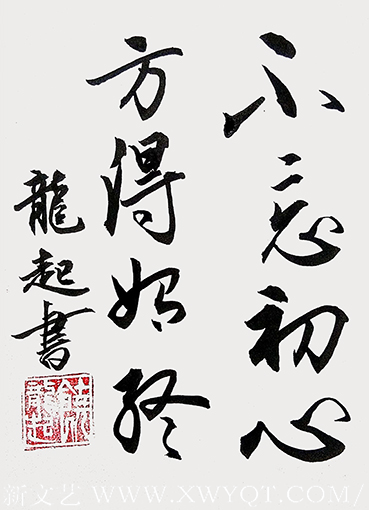 不忘初心
方得始终
龍起書
新文艺 WWW.XWYQT.COM/